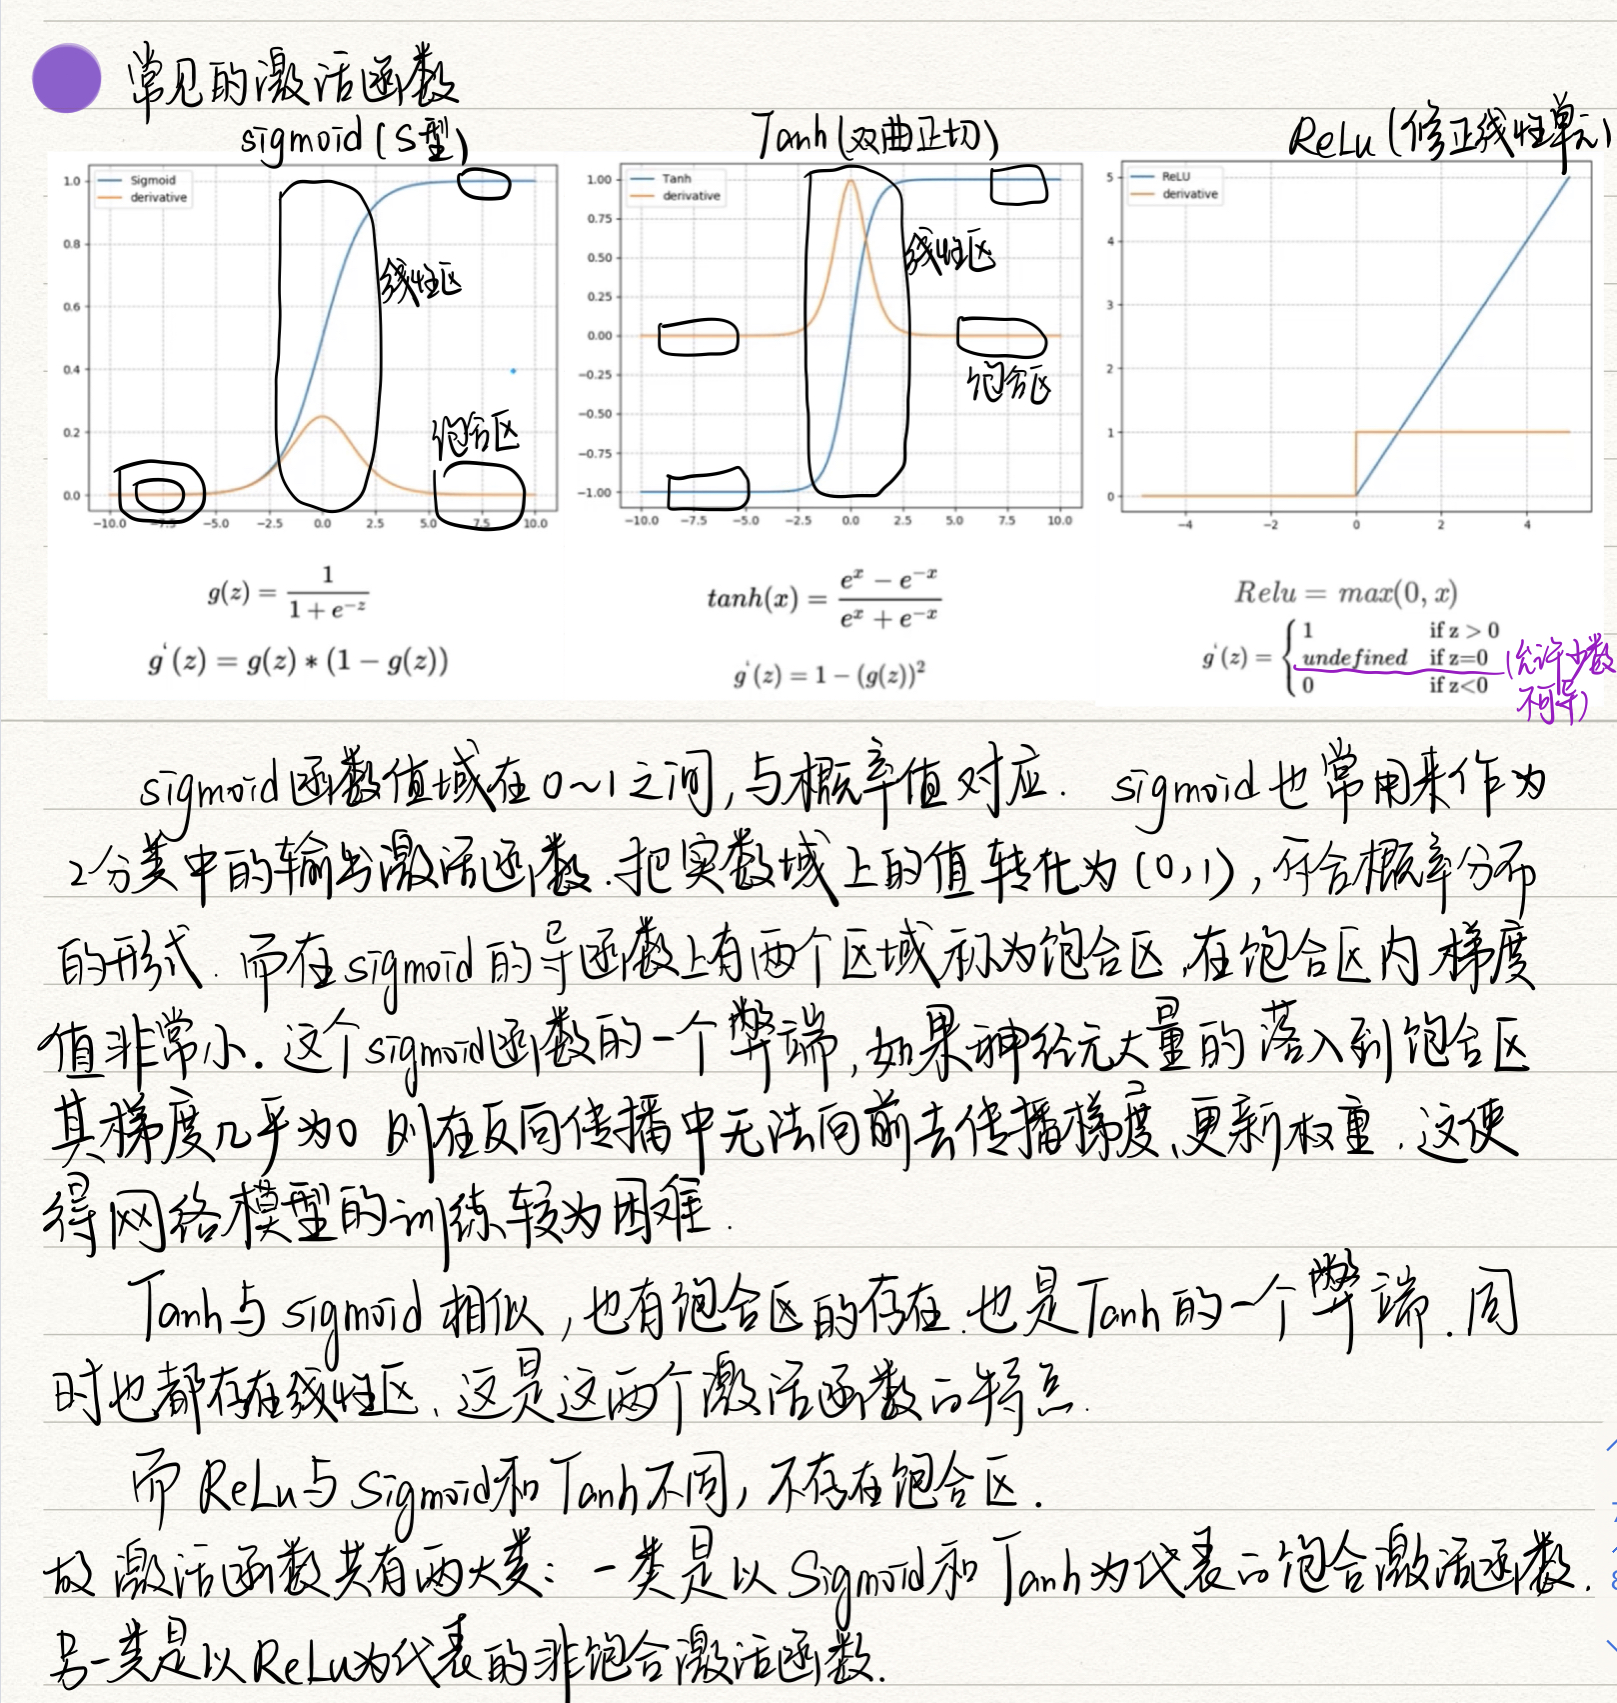 常见的激活函数
sigmoid(S型)
Tanh(双曲正切)
ReLu(修正线性单元)
Sigmoid
derivative
1.0
0.8
0.6
0.4
0.2
0.0
-10.0 -7.5 -5.0 -2.5 0.0 2.5 5.0 7.5 10.0
线性区
饱合区
Tanh
derivative
1.00
0.75
0.50
0.25
0.00
-0.25
-0.50
-0.75
-1.00
-10.0 -7.5 -5.0 -2.5 0.0 2.5 5.0 7.5 10.0
线性区
饱合区
ReLU
derivative
5
4
3
2
1
0
-4 -2 0 2 4
g(z) = 1 / (1 + e^{-z})
g'(z) = g(z) * (1 − g(z))
tanh(x) = (e^x − e^{-x}) / (e^x + e^{-x})
g'(z) = 1 − (g(z))²
Relu = max(0, x)
g'(z) = { 1 if z > 0
undefined if z=0
0 if z<0
(允许少数
不可导)
sigmoid函数值域在0~1之间,与概率值对应. sigmoid也常用来作为
2分类中的输出激活函数.把实数域上的值转化为(0,1),符合概率分布
的形式.而在sigmoid的导函数上有两个区域称为饱合区,在饱合区内梯度
值非常小.这个sigmoid函数的一个弊端,如果神经元大量的落入到饱合区
其梯度几乎为0 则在反向传播中无法向前去传播梯度、更新权重.这使
得网络模型的训练较为困难.
Tanh与sigmoid相似,也有饱合区的存在.也是Tanh的一个弊端.同
时也都存在线性区、这是这两个激活函数的特点.
而ReLu与Sigmoid和Tanh不同,不存在饱合区.
故激活函数共有两大类:一类是以Sigmoid和Tanh为代表的饱合激活函数.
另一类是以ReLu为代表的非饱合激活函数.